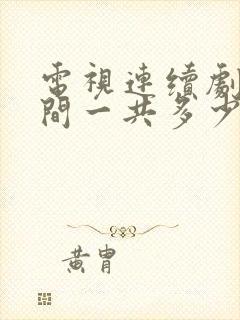 電視連續劇
間一共多少
黃胄